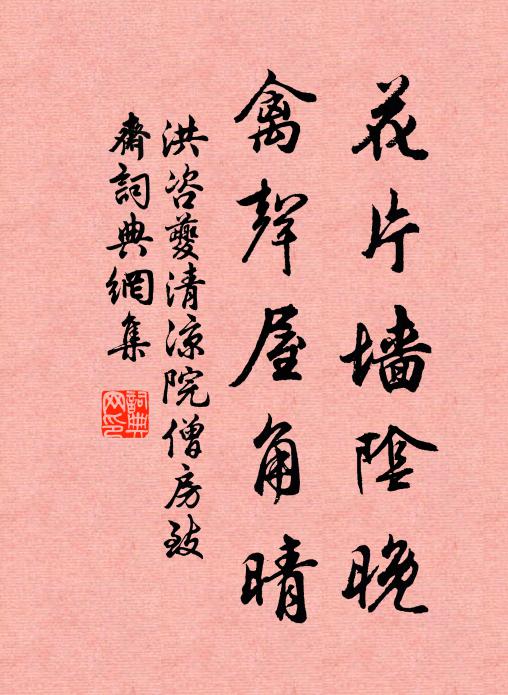 花片墙陰晚
禽聲屋角晴
洪咨夔清涼院僧房致
齋詞典網集
詞典
网印